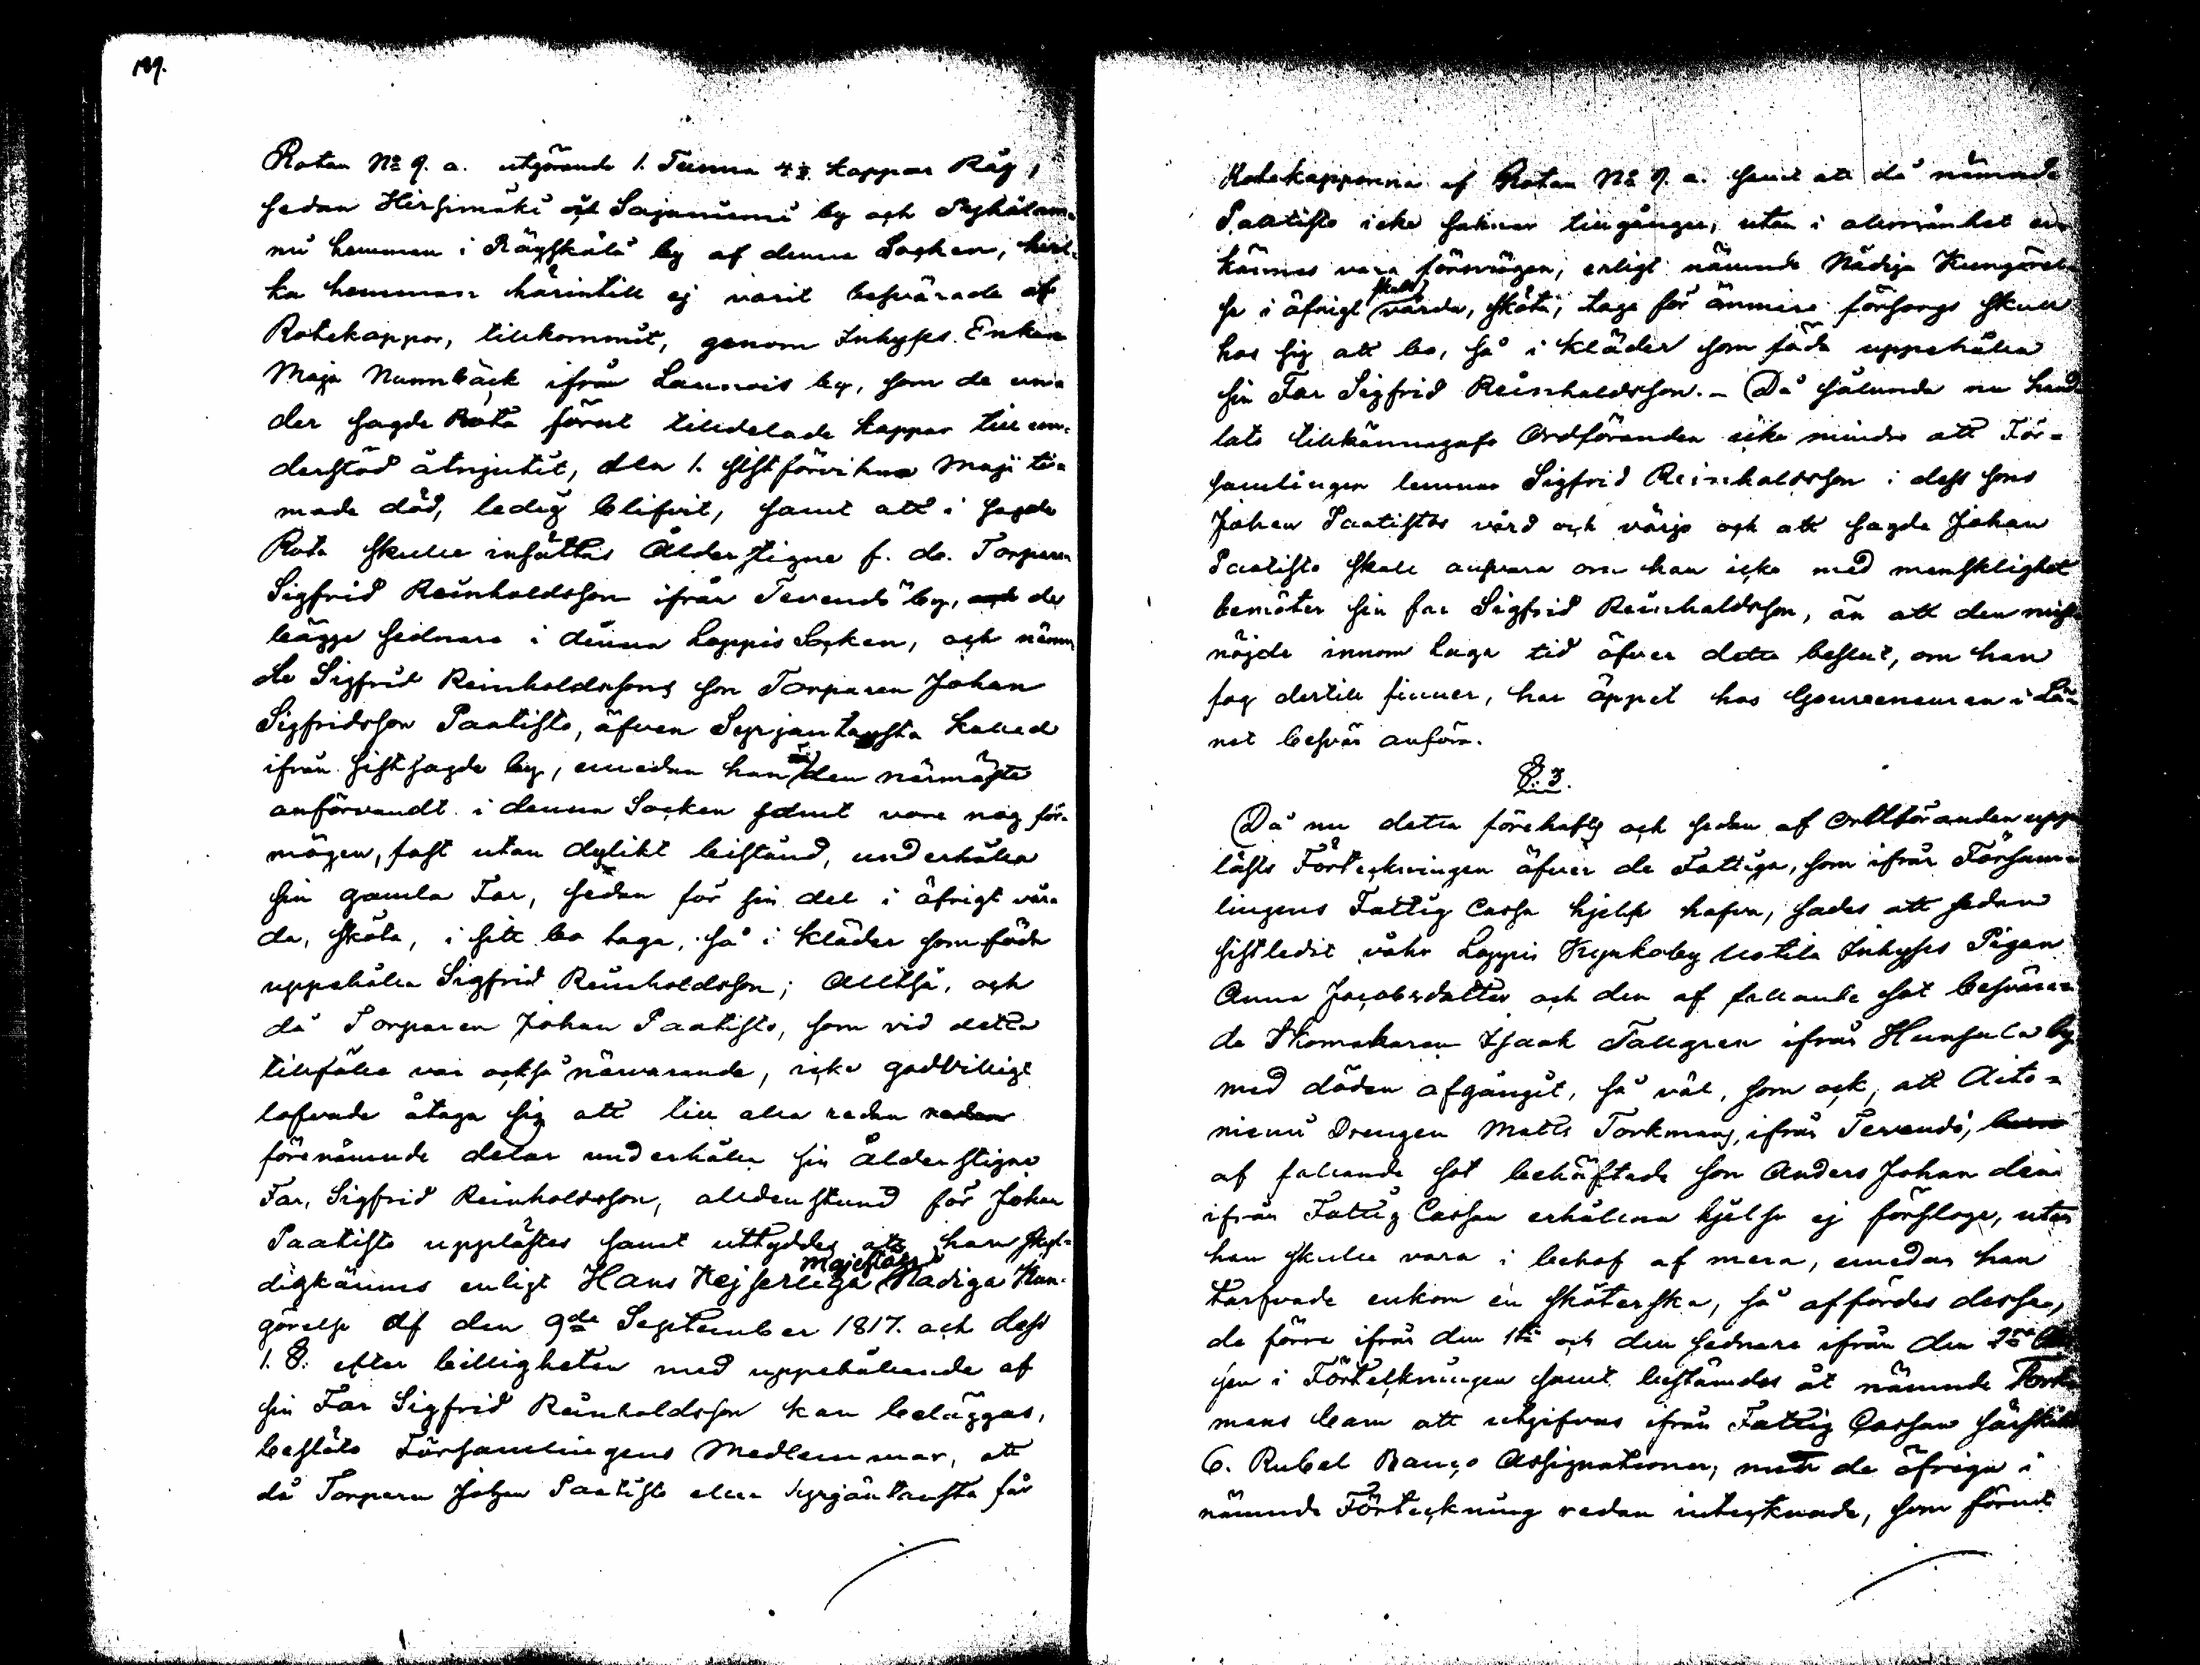 199.
Rotan No 9. a. utgörande 1. Tunna 4 3/4 kappar Råg,
sedan Hirsimäki åt Sajaniemi by och Pyhälam-
mi hemman i Räyskälä by af denna Socken, hvil-
ka hemman härintill ej varit besvärade af
Rotekappor, tillkommit, genom Inhyses Enkan
Maja Nummbäck ifrån Launois by, som de un-
der sagde Rota förut tilldelade kappar till un-
derstöd åtnjutit, den 1. sistförvikne Maji ti-
made död, ledig blifvit, samt att i sagde
Rota skulle insättas Ålderstigne f. do. Torparen
Sigfrid Reinholdsson ifrån Tevendö by, och de
bägge sednare i denna Loppis Socken, och nämn-
de Sigfrid Reinholdssons son Torparen Johan
Sigfridsson Paatisto, äfven Syrjäntausta kallad
ifrån sistsagde by, emedan han är den närmaste
anförvandt i denna Socken samt vore nog för-
mögen, fast utan dylikt bistånd, underhålla
sin gamla Far, sedan för sin del i öfrigt vår-
da, sköta, i sitt bo taga, så i kläder som föda
uppehålla Sigfrid Reinholdsson; Alltså, och
då Torparen Johan Paatisto, som vid detta
tillfälle var också närvarande, icke godvilligt
lofvade åtaga sig att till alla redan nedan
förenämnde delar underhålla sin ålderstigne
Far, Sigfrid Reinholdsson, alldenstund för Johan
Paatisto upplästes samt uttyddes att han skyl-
digkännes enligt Hans Kejserliga Majestäts Nådiga Kun-
görelse af den 9de September 1817. och dess
1. §. efter billigheten med uppehållande af
sin Far Sigfrid Reinholdsson kan beläggas,
beslöto Församlingens Medlemmar, att
då Torparen Johan Paatisto eller Syrjäntausta får
Rotekapporna af Rotan No 9. a. samt att då nämnde
Paatisto icke saknar tillgångar, utan i allmänhet er-
kännes vara förmögen, enligt nämnde Nådiga Kungörel-
se i öfrigt skall vårda, sköta, taga för ömmare försorgs skull
hos sig att bo, så i kläder som föda uppehålla
sin Far Sigfrid Reinholdsson. - Då sålunda nu hand-
lats tillkännagaf Ordföranden icke mindre att För-
samlingen lemnar Sigfrid Reinholdsson i dess sons
Johan Paatistos vård och värjo och att sagde Johan
Paatisto skall ansvara om han icke med mensklighet
bemöter sin far Sigfrid Reinholdsson, än att den miss-
nöjde innom laga tid öfver detta beslut, om han
fog dertill finner, har öppet hos Gouverneuren i Lä-
net besvär anföra.
§. 3.
Då nu detta förehafts och sedan af Ordföranden upp-
lästs Förteckningen öfver de Fattiga, som ifrån Försam-
lingens Fattig Cassa hjelp hafva, sades att sedan
sistledit våhr Loppis Kyrkoby Uotila Inhyses Pigan
Anna Jacobsdotter och den af fallande sot besväran-
de Skomakaren Isaak Tallgren ifrån Hunsala by
med döden afgångit, så väl, som ock, att Aito-
niemi Drengen Matts Torkmans, ifrån Tevendö, barn
af fallande sot behäftade son Anders Johan den
ifrån Fattig Cassan erhållna hjelp ej försloge, utan
han skulle vara i behof af mera, emedan han
tarfvade enkom en sköterska, så affördes desse,
de förra ifrån den 1sta och den sednare ifrån den 2dra
sen i Förteckningen samt bestämdes åt nämnde Tork-
mans barn att utgifvas ifrån Fattig Cassan särskildt
6. Rubel Banco Assignationer, med de öfriga i
nämnde Förteckning redan intecknade, som förut